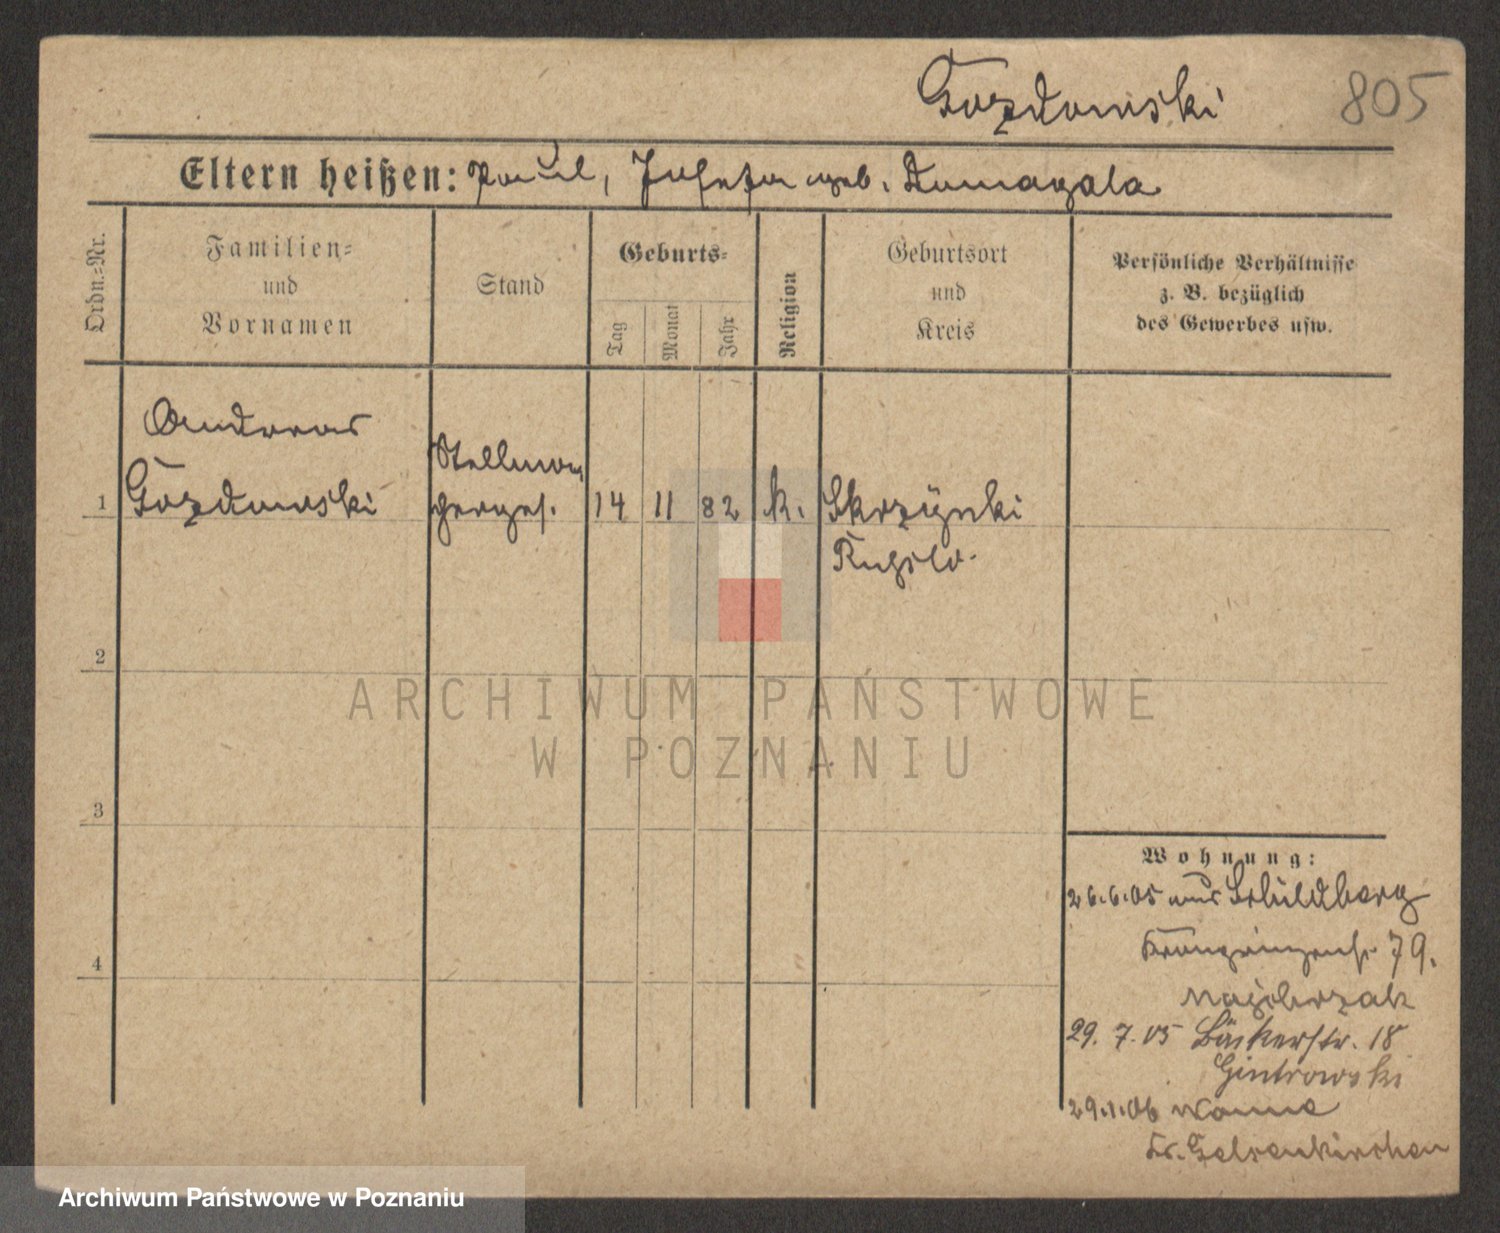 Gozdowski 805
Eltern heißen: Paul, Josefa geb. Domagala
Ordn.-Nr.
Familien-
und
Vornamen
Stand
Geburts-
Tag
Monat
Jahr
Religion
Geburtsort
und
Kreis
Persönliche Verhältnisse
z. B. bezüglich
des Gewerbes usw.
Andreas
Stellma
1 Gozdowski cherges. 14 11 82 k. Skrzynki
2
ARCHIWUM PAŃSTWOWE
W POZNANIU
3
Wohnung:
26.6.05 aus Schildberg
Kronprinzenstr 79.
4
Majchrzak
29. 7. 05 Bäckerstr. 18
Gintrowski
29.1.06 Wanne
Kr. Gelsenkirchen
Archiwum Państwowe w Poznaniu